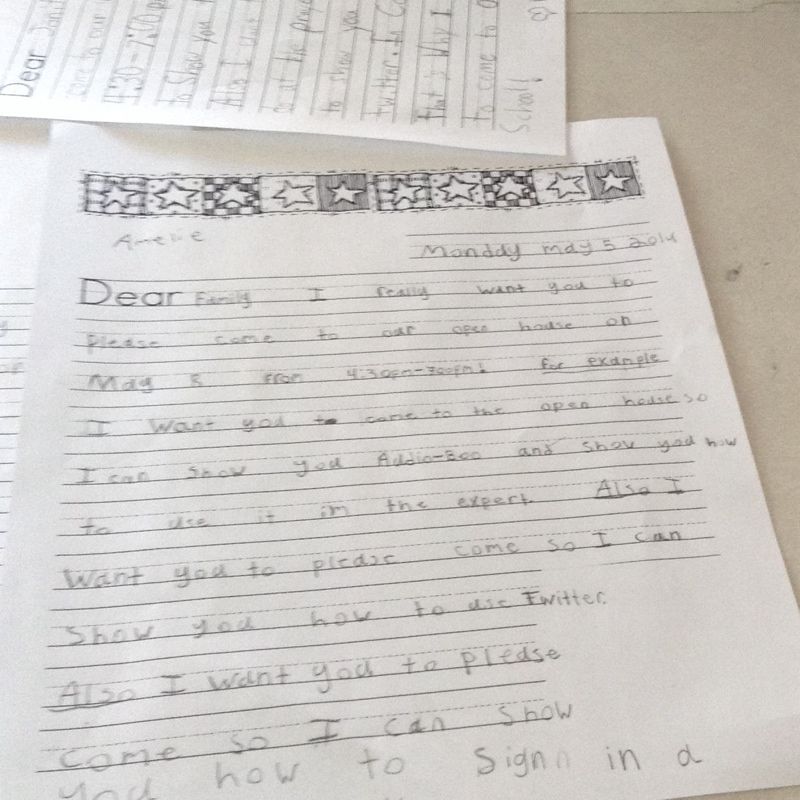 Dear
come to our
4:30-7:00p
to show you
Also I want
to show you
twitter. In
That's Why I
to come to o
School!
Amelie
Monday may 5 2014
Dear Family I really want you to
please come to our open house on
May 5 from 4:30pm-7:00pm! for example
I want you to come to the open house so
I can show you Addio-Boo and show you how
to use it im the expert. Also I
Want you to please come so I can
Show you how to use Twitter.
Also I want you to please
come so I can show
you how to Signn in a